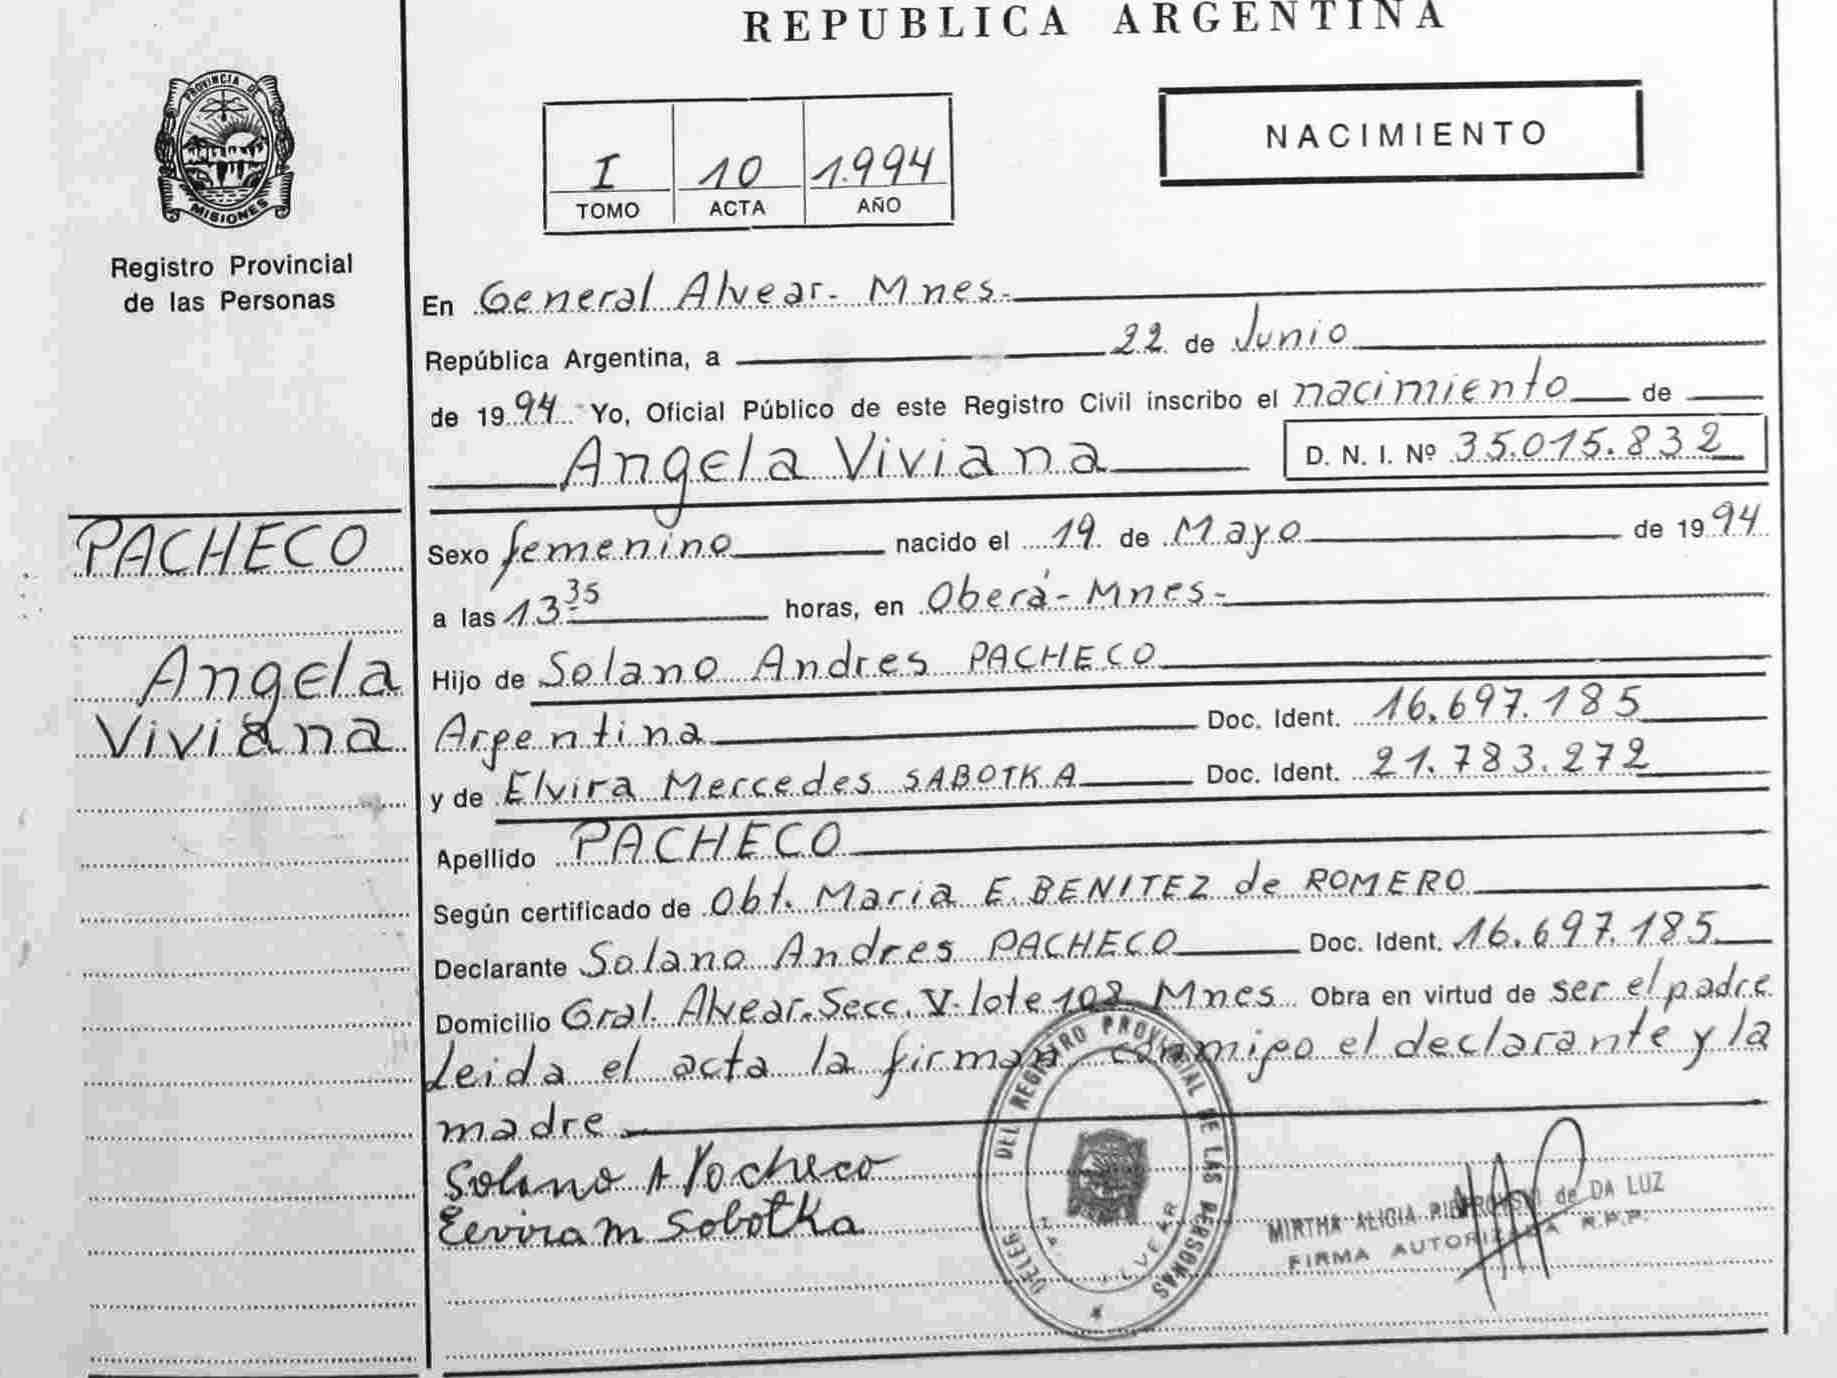 REPUBLICA ARGENTINA
PROVINCIA DE
MISIONES
Registro Provincial
de las Personas
I 10 1.994
TOMO ACTA AÑO
NACIMIENTO
En General Alvear- Mnes-
República Argentina, a 22 de Junio
de 1994 Yo, Oficial Público de este Registro Civil inscribo el nacimiento de
Angela Viviana D. N. I. Nº 35.015.832
PACHECO
Angela
Viviana
Sexo femenino nacido el 19 de Mayo de 1994
a las 13 35 horas, en Oberá- Mnes-
Hijo de Solano Andres PACHECO
Argentina Doc. Ident. 16.697.185
y de Elvira Mercedes SABOTKA Doc. Ident. 21.783.272
Apellido PACHECO
Según certificado de Obt. Maria E. BENITEZ de ROMERO
Declarante Solano Andres PACHECO Doc. Ident. 16.697.185
Domicilio Gral. Alvear-Secc. V-lote 108 Mnes Obra en virtud de ser el padre
Leida el acta la firman conmigo el declarante y la
madre
Solano A Pocheco
Elvira M Sobotka
DELEG DEL REGISTRO PROVINCIAL DE LAS PERSONAS
MIRTHA ALICIA de DA LUZ
FIRMA AUTORIZADA R.P.P.